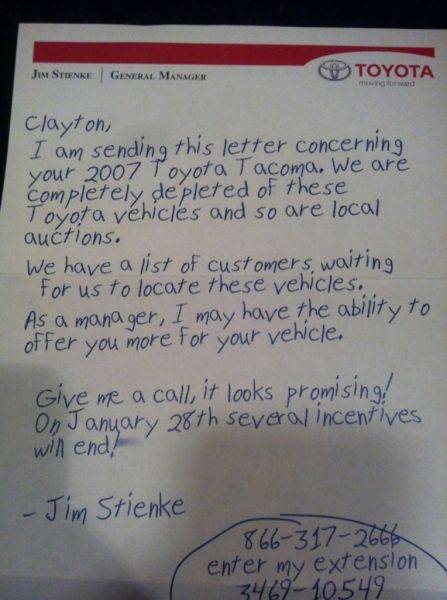 JIM STIENKE | GENERAL MANAGER
TOYOTA
moving forward
Clayton,
I am sending this letter concerning
your 2007 Toyota Tacoma. We are
completely depleted of these
Toyota vehicles and so are local
auctions.
We have a list of customers waiting
for us to locate these vehicles.
As a manager, I may have the ability to
offer you more for your vehicle.
Give me a call, it looks promising!
On January 28th several incentives
will end!
- Jim Stienke
866-317-2666
enter my extension
3469-10549